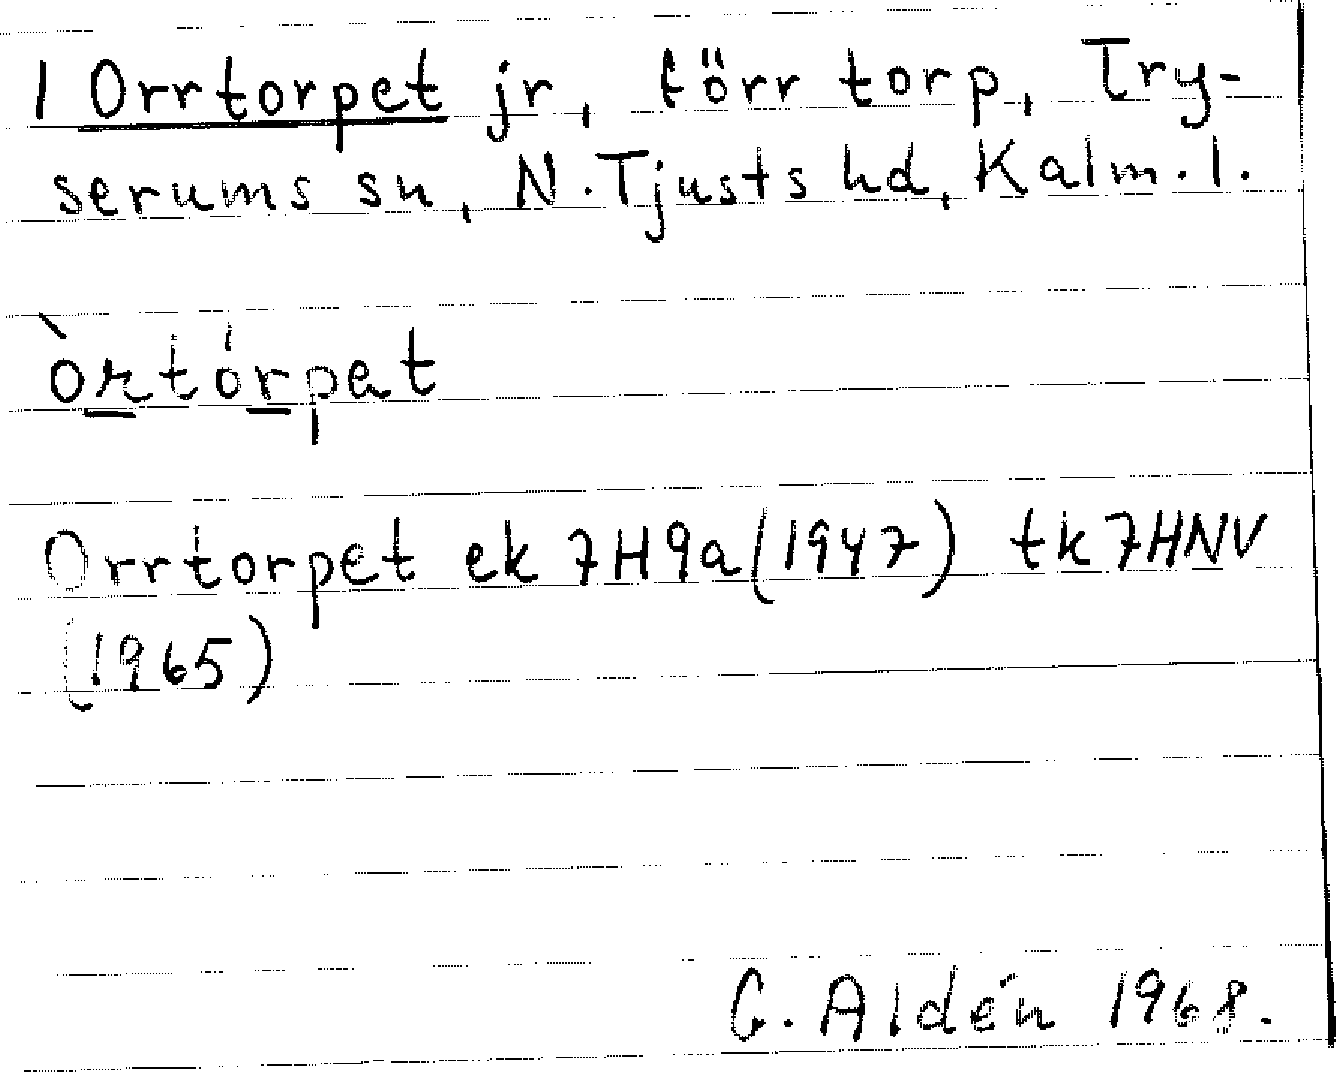 1 Orrtorpet jr, förr torp, Try-
serums sn, N. Tjusts hd, Kalm. l.
òrtórpat
Orrtorpet ek 7H9a (1947) tk 7HNV
(1965)
G. Aldén 1968.